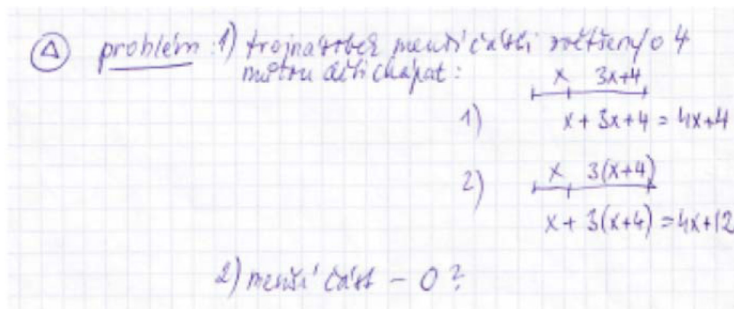 Δ problém: 1) trojnásobek menší části zvětšený o 4
mohou děti chápat:
x 3x+4
1) x + 3x + 4 = 4x+4
x 3(x+4)
2) x + 3(x+4) = 4x+12
2) menší část – 0?